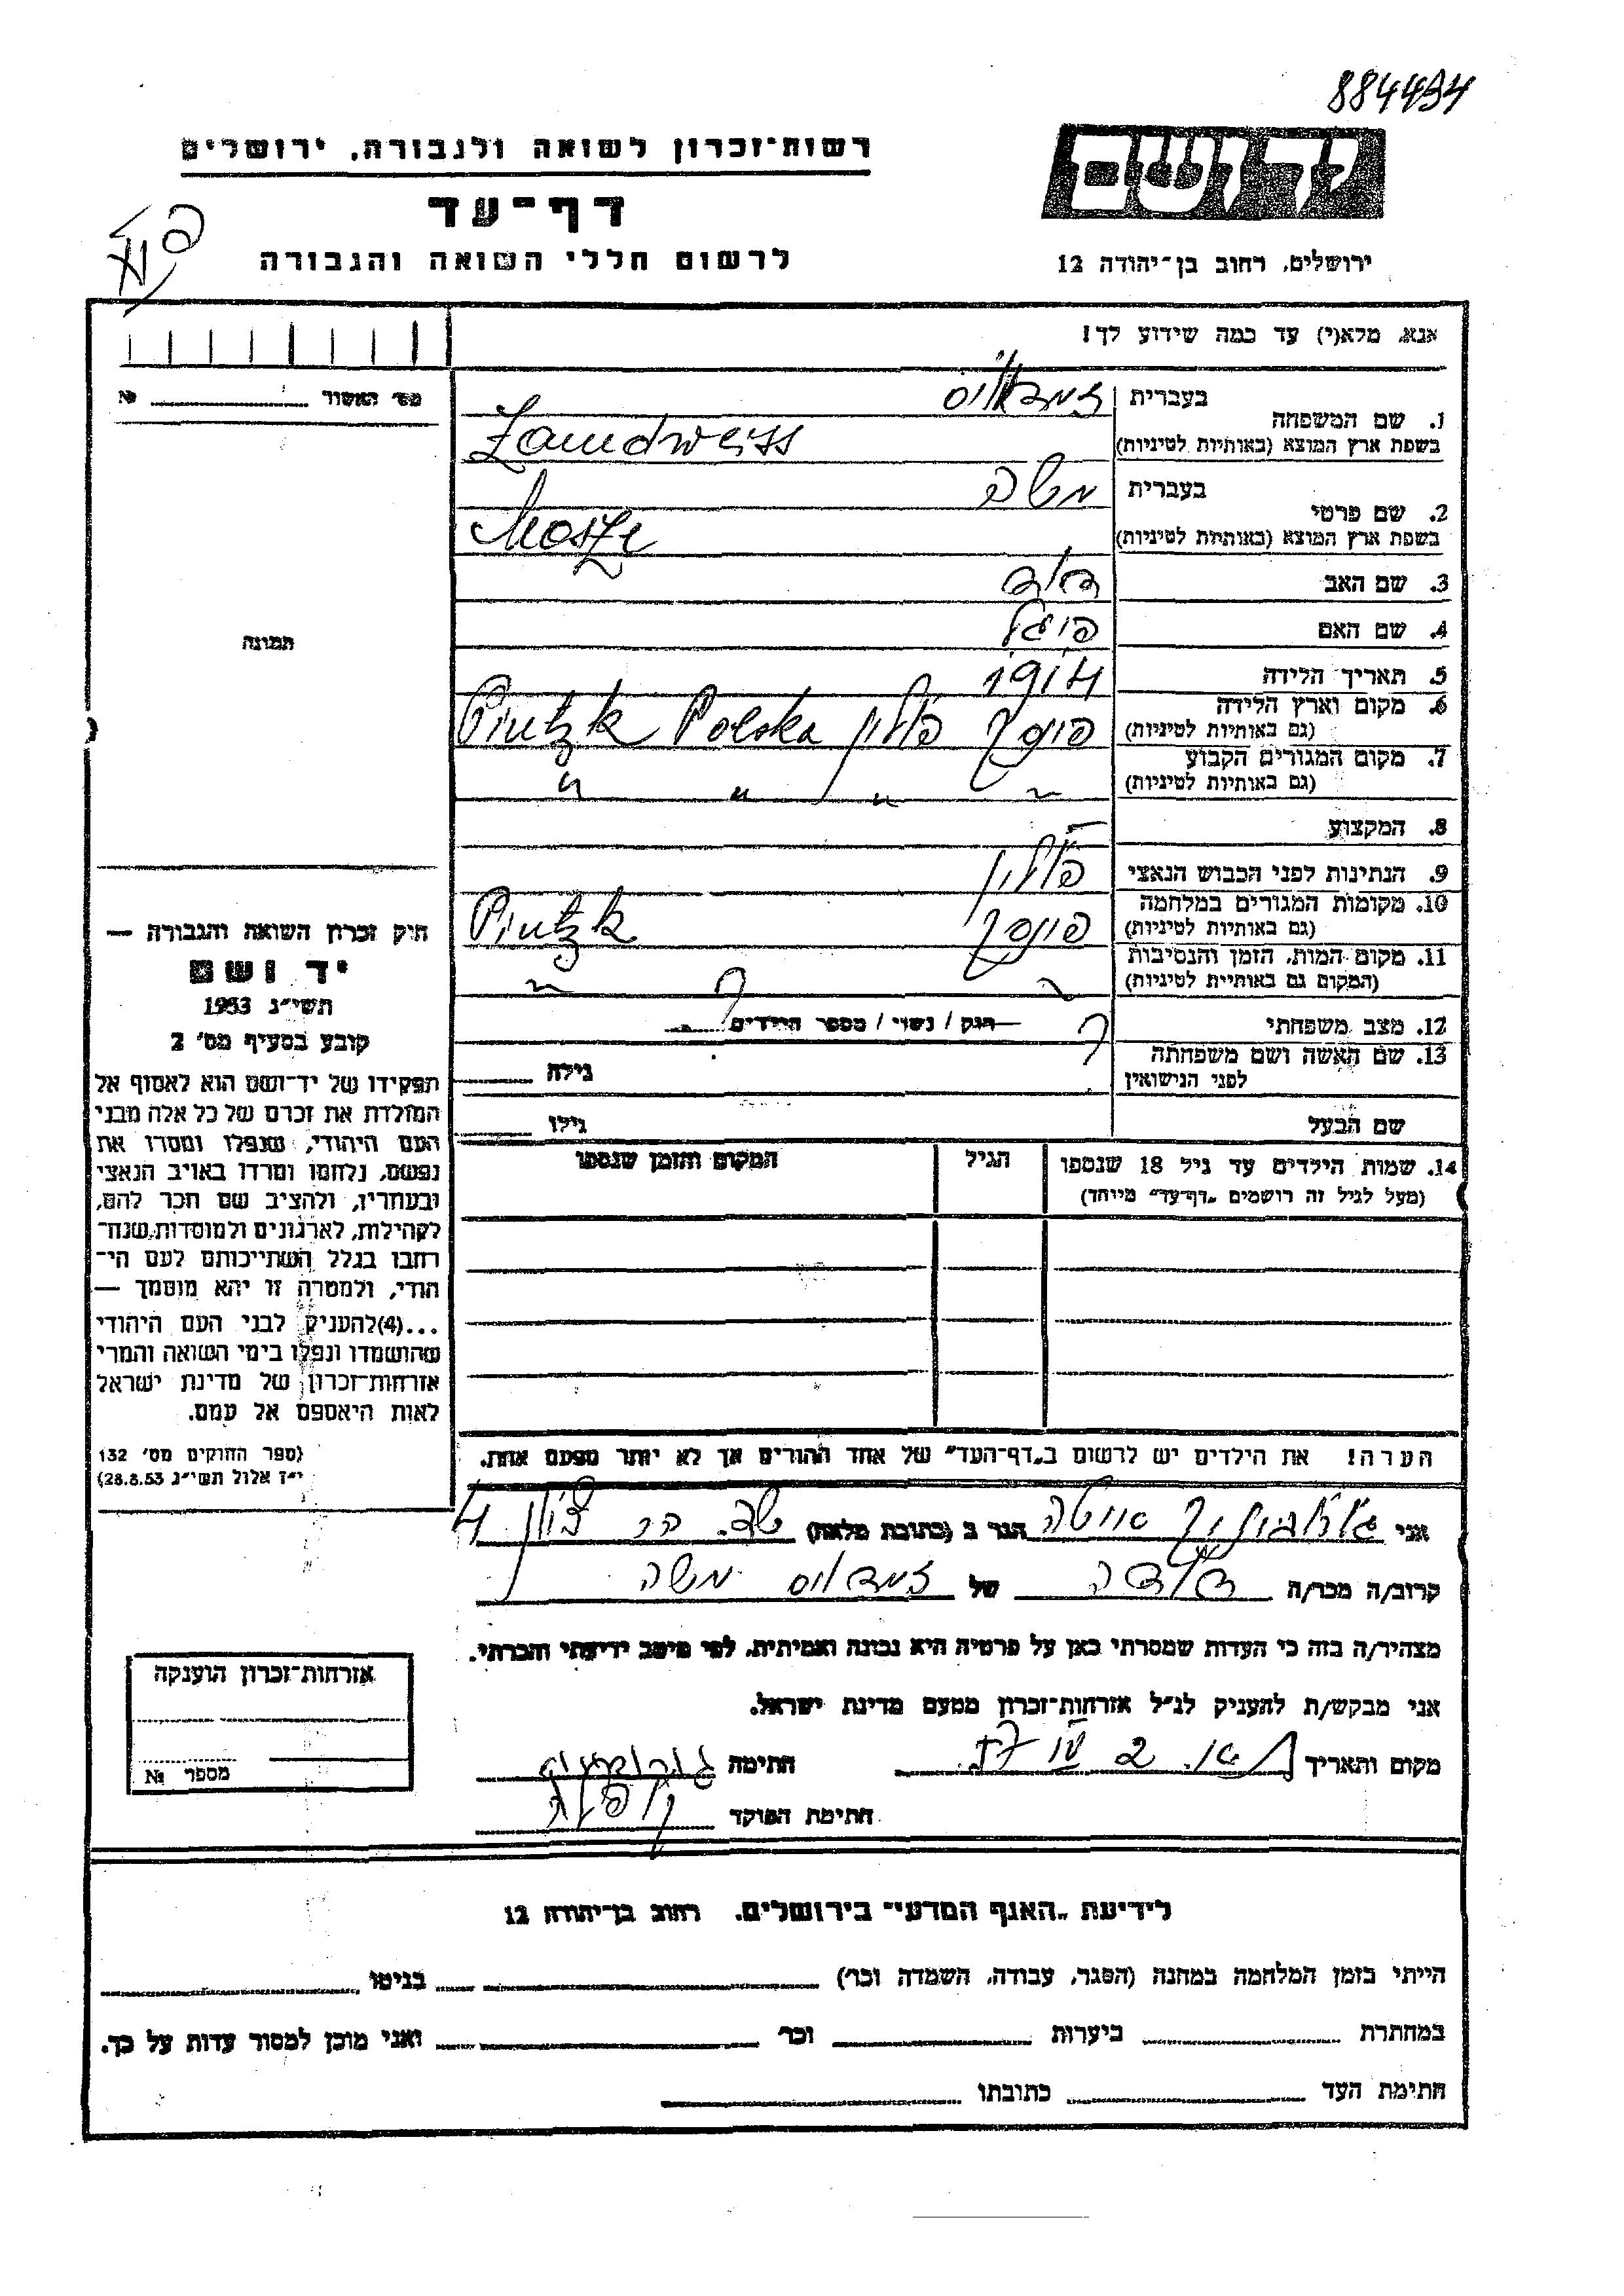 884494
רשות־זכרון לשואה ולגבורה, ירושלים
יד ושם
דף־עד
לרשום חללי השואה והגבורה
ירושלים, רחוב בן־יהודה 12
אנא, מלא(י) עד כמה שידוע לך!
מס׳ האשור № 
1. שם המשפחה
בעברית
בשפת ארץ המוצא (באותיות לטיניות) Zamdweiss
2. שם פרטי
בעברית משה
בשפת ארץ המוצא (באותיות לטיניות) Moszle
3. שם האב דוד
4. שם האם פויגל
5. תאריך הלידה 1914
6. מקום וארץ הלידה
(גם באותיות לטיניות) פינסק פולין Pintzk Polska
7. מקום המגורים הקבוע
(גם באותיות לטיניות) " " " "
8. המקצוע —
9. הנתינות לפני הכבוש הנאצי פולין
10. מקומות המגורים במלחמה
(גם באותיות לטיניות) פינסק Pintzk
11. מקום המות, הזמן והנסיבות
(המקום גם באותיות לטיניות) ? ? "
12. מצב משפחתי ? רווק / נשוי / מספר הילדים
13. שם האשה ושם משפחתה
לפני הנישואין
גילה
שם הבעל
גילו
14. שמות הילדים עד גיל 18 שנספו
(מעל לגיל זה רושמים „דף־עד״ מיוחד)
הגיל
המקום והזמן שנספו
הערה! את הילדים יש לרשום ב„דף־העד״ של אחד ההורים אך לא יותר מפעם אחת.
תמונה
חוק זכרון השואה והגבורה —
יד ושם
תשי״ג 1953
קובע בסעיף מס׳ 2
תפקידו של יד־ושם הוא לאסוף אל
המולדת את זכרם של כל אלה מבני
העם היהודי, שנפלו ומסרו את
נפשם, נלחמו ומרדו באויב הנאצי
ובעוזריו, ולהציב שם וזכר להם,
לקהילות, לארגונים ולמוסדות שנח־
רבו בגלל השתייכותם לעם הי־
הודי, ולמטרה זו יהא מוסמך —
...(4) להעניק לבני העם היהודי
שהושמדו ונפלו בימי השואה והמרי
אזרחות־זכרון של מדינת ישראל
לאות היאספם אל עמם.
(ספר החוקים מס׳ 132
י״ז אלול תשי״ג 28.8.53)
אני הגר ב (כתובת מלאה) שכ. הר ציון 4
קרוב/ה מכר/ה דודה של זמדויס משה
מצהיר/ה בזה כי העדות שמסרתי כאן על פרטיה היא נכונה ואמיתית, לפי מיטב ידיעתי והכרתי.
אני מבקש/ת להעניק לנ״ל אזרחות־זכרון מטעם מדינת ישראל.
מקום ותאריך חתימה
חתימת הפוקד
אזרחות־זכרון הוענקה
מספר №
לידיעת „האגף המדעי״ בירושלים. רחוב בן־יהודה 12
הייתי בזמן המלחמה במחנה (הסגר, עבודה, השמדה וכו׳) בגיטו
במחתרת ביערות וכו׳ ואני מוכן למסור עדות על כך.
חתימת העד כתובתו